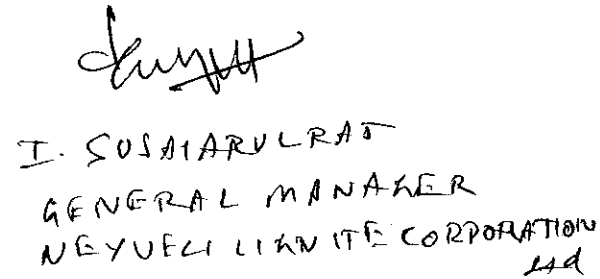 I. SUSAIARULRAJ
GENERAL MANAGER
NEYVELI LIGNITE CORPORATION
Ltd